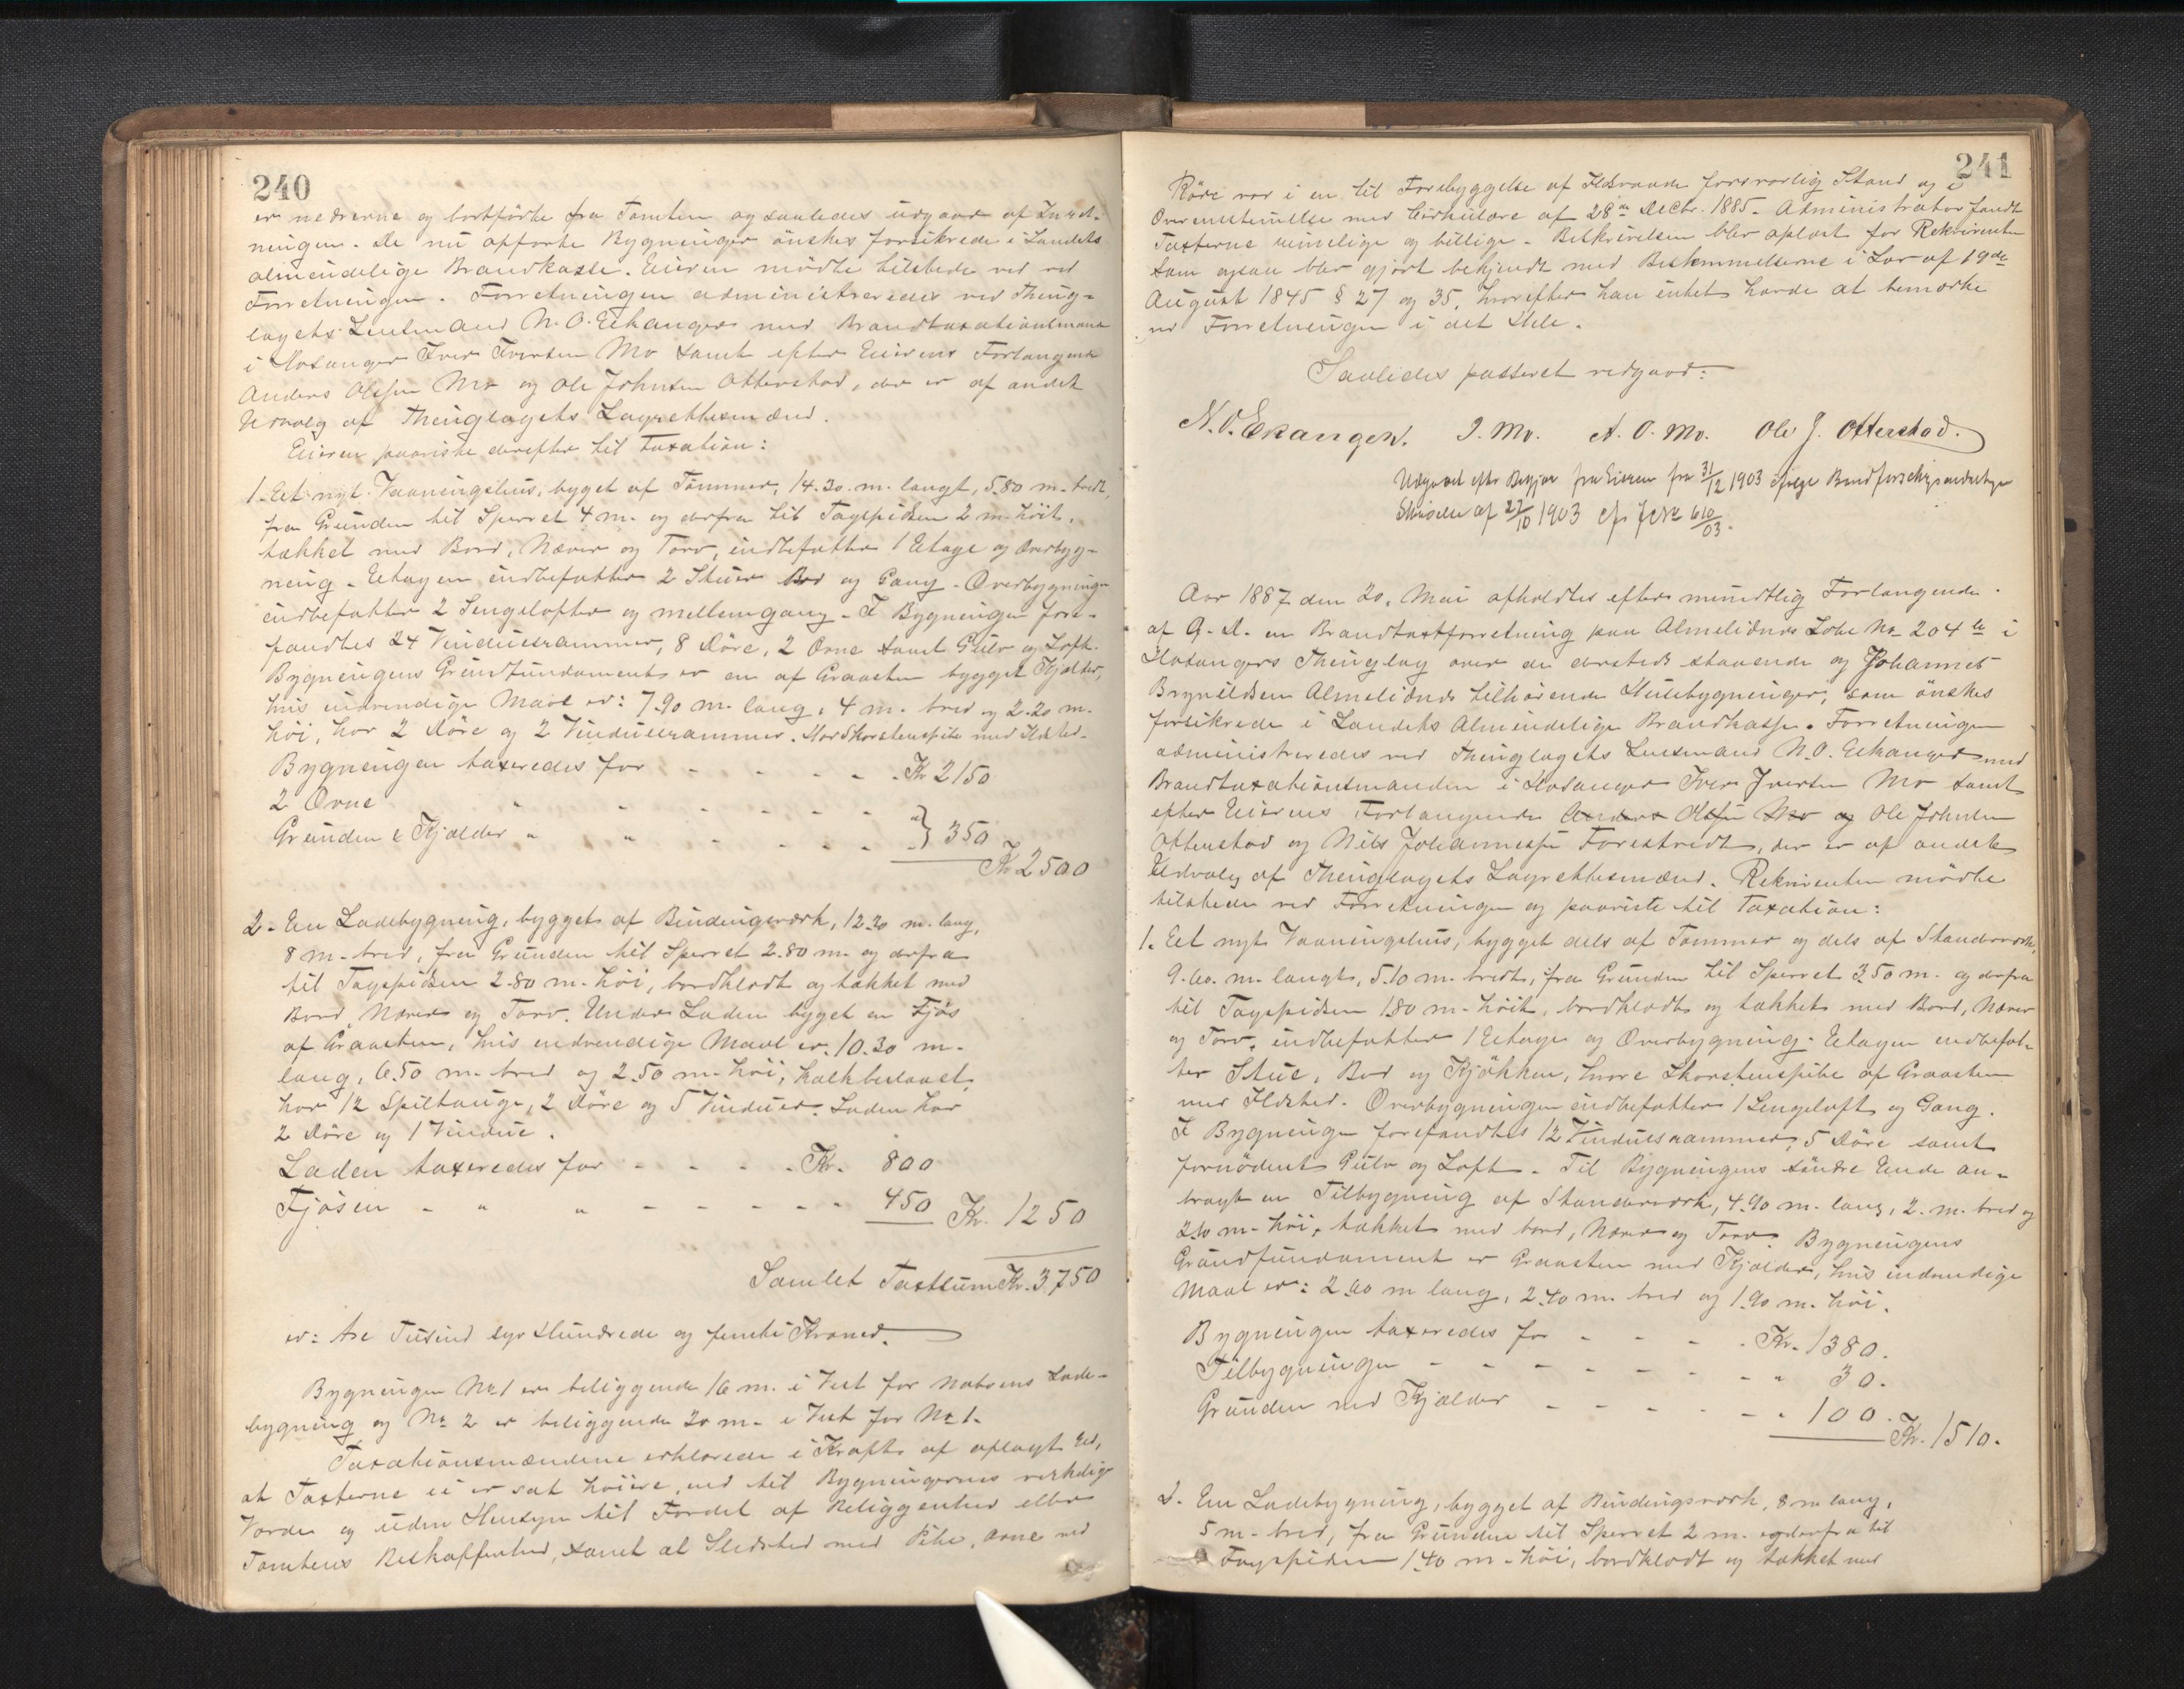 240
er nedrevne og bortførte fra Tomten og saaledes udgaar af Indret-
ningen. De nu opførte Bygninger ønskes forsikrede i Landets
almindelige Brandkasse. Eieren mødte tilstede ved
Forretningen. Forretningen administreredes ved Thing-
lagets Lensmand N. O. Eikanger med Brandtaxationsmand
i Hosanger Iver Iversen Mo samt efter Eierens Forlangende
Anders Olsen Mo og Ole Johnsen Otterstad, der er af andet
Udvalg af Thinglagets Lagrettesmænd.
Eieren paaviste derefter til Taxation:
1. Et nyt Vaaningshus, bygget af Tømmer, 14.30 m. langt, 5.80 m. bredt,
fra Grunden til Sperret 4 m. og derfra til Tagspidsen 2 m. høit,
tækket med Bord, Næver og Torv, indbefatter 1 Etage og Overbyg-
ning. Etagen indbefatter 2 Stuer Bod og Gang. Overbygningen
indbefatter 2 Sengelofter og mellemgang. I Bygningen fore-
fandtes 24 Vinduesrammer, 8 Døre, 2 Ovne samt Gulv og Loft.
Bygningens Grundfundament er en af Graasten bygget Kjælder,
hvis indvendige Maal er: 7.90 m. lang, 4 m. bred og 2.20 m.
høi, har 2 Døre og 2 Vinduesrammer. Har Skorstenspibe med Ildsted.
Bygningen taxeredes for - - - - Kr. 2150
2 Ovne " " - - - - "
Grunden & Kjælder " " - - - - } 350
Kr 2500
2. En Ladebygning, bygget af Bindingsværk, 12.20 m. lang,
8 m. bred, fra Grunden til Sperret 2.80 m. og derfra
til Tagspidsen 2.80 m. høi, bordklædt og tækket med
Bord, Næver og Torv. Under Laden bygget en Fjøs
af Graasten, hvis indvendige Maal er 10.30 m.
lang, 6.50 m. bred og 2.50 m. høi, kalkbeslaaet,
har 12 Spiltauge, 2 Døre og 5 Vinduer. Laden har
2 Døre og 1 Vindue.
Laden taxeredes for - - - - Kr. 800
Fjøsen - " " - - - - - 450 Kr. 1250
Samlet Taxtsum Kr. 3750
er: tre Tusind syv Hundrede og femti Kroner.
Bygningen No 1 er beliggende 16 m. i Vest for Naboens Lade-
bygning og No 2 er beliggende 20 m. i Vest for No 1.
Taxationsmændene erklærede i Kraft af aflagt Ed,
at Taxterne ei er sat høiere, end til Bygningernes virkelige
Værde og uden Hensyn til Fordel af Beliggenhed eller
Tomtens Beskaffenhed, samt at Ildsted med Pibe, Ovne ved
241
Røre var i en til Forebyggelse af Ildsvaade forsvarlig Stand og i
Overensstemmelse med Cirkulære af 28de Decbr. 1885. Administrator fandt
Taxterne rimelige og billige. Beskrivelsen blev oplæst for Rekvirenten
som ogsaa blev gjort bekjendt med Bestemmelserne i Lov af 19de
August 1845 § 27 og 35, hvorefter han intet havde at bemærke
ved Forretningen i det Hele.
Saaledes passeret vedgaar:
N. O. Eikanger. I. Mo. A. O. Mo. Ole J. Otterstad.
Udgaaet efter Begjær fra Eieren fra 31/12 1903 ifølge Brandforsikrings
Skrivelse af 27/10 1903 cfr JNr 610/03.
Aar 1887 den 20. Mai afholdtes efter mundtlig Forlangende
af G. D. en Brandtaxtforretning paa Almelidnes Løbe No 204 i
Hosangers Thinglag over de dersteds staaende og Johannes
Brynildsen Almelidnes tilhørende Husebygninger, som ønskes
forsikrede i Landets Almindelige Brandkasse. Forretningen
administreredes ved Thinglagets Lensmand N. O. Eikanger med
Brandtaxationsmanden i Hosanger Iver Iversen Mo samt
efter Eierens Forlangende Anders Olsen Mo og Ole Johnsen
Otterstad og Nils Johannessen Forestvedt, der er af andet
Udvalg af Thinglagets Lagrettesmænd. Rekvirenten mødte
tilstede ved Forretningen og paaviste til Taxation:
1. Et nyt Vaaningshus, bygget dels af Tømmer og dels af Standerværk,
9.60 m. langt, 5.10 m. bredt, fra Grunden til Sperret 3.50 m. og derfra
til Tagspidsen 1.80 m. høit, bordklædt og tækket med Bord, Næver
og Torv, indbefatter 1 Etage og Overbygning. Etagen indbefat-
ter Stue, Bod og Kjøkken, hvori Skorstenspibe af Graasten
med Ildsted. Overbygningen indbefatter 1 Sengeloft og Gang.
I Bygningen forefandtes 12 Vinduesrammer, 5 Døre samt
fornødent Gulv og Loft. Til Bygningens søndre Ende an-
bragt en Tilbygning af Standerværk, 4.90 m. lang, 2. m. bred og
2.10 m. høi, tækket med bord, Næver og Torv. Bygningens
Grundfundament er Graasten med Kjælder, hvis indvendige
Maal er: 2.60 m lang, 2.40 m. bred og 1.90 m. høi.
Bygningen taxeredes for - - - - Kr. 1380.
Tilbygningen - - - - - - " 30.
Grunden med Kjælder - - - - " 100.
Kr. 1510.
2. En Ladebygning, bygget af Bindingsværk, 8 m lang,
5 m. bred, fra Grunden til Sperret 2 m. og derfra til
Tagspidsen 1.40 m. høi, bordklædt og tækket med